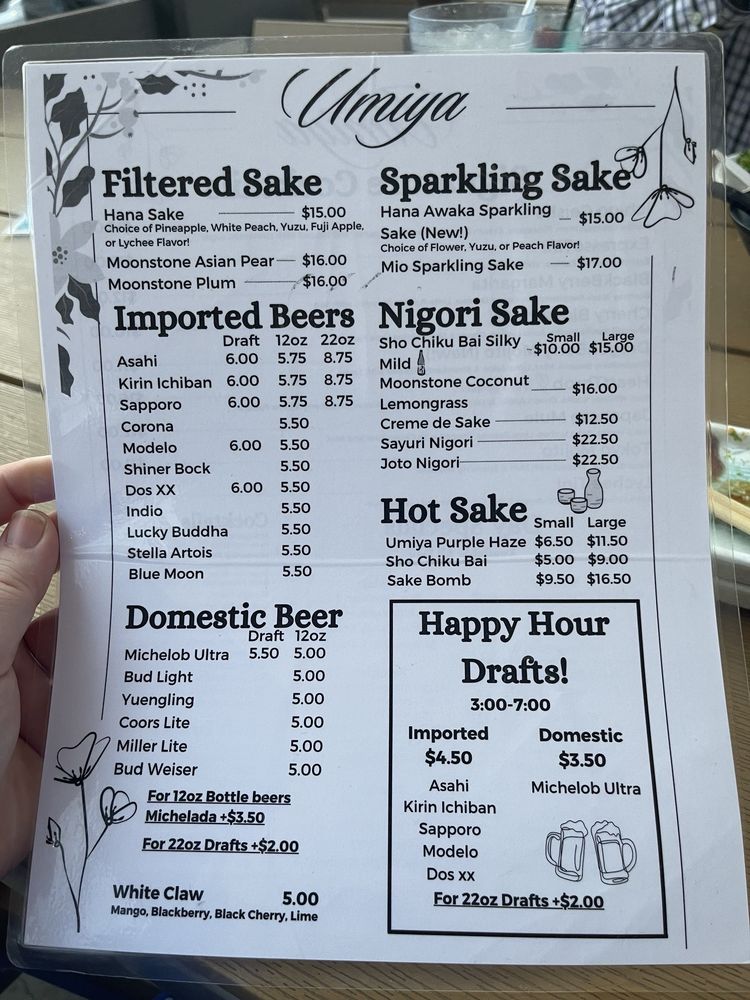 Umiya
Filtered Sake
Hana Sake $15.00
Choice of Pineapple, White Peach, Yuzu, Fuji Apple,
or Lychee Flavor!
Moonstone Asian Pear $16.00
Moonstone Plum $16.00
Imported Beers
Draft 12oz 22oz
Asahi 6.00 5.75 8.75
Kirin Ichiban 6.00 5.75 8.75
Sapporo 6.00 5.75 8.75
Corona 5.50
Modelo 6.00 5.50
Shiner Bock 5.50
Dos XX 6.00 5.50
Indio 5.50
Lucky Buddha 5.50
Stella Artois 5.50
Blue Moon 5.50
Domestic Beer
Draft 12oz
Michelob Ultra 5.50 5.00
Bud Light 5.00
Yuengling 5.00
Coors Lite 5.00
Miller Lite 5.00
Bud Weiser 5.00
For 12oz Bottle beers
Michelada +$3.50
For 22oz Drafts +$2.00
White Claw 5.00
Mango, Blackberry, Black Cherry, Lime
Sparkling Sake
Hana Awaka Sparkling
Sake (New!) $15.00
Choice of Flower, Yuzu, or Peach Flavor!
Mio Sparkling Sake $17.00
Nigori Sake
Small Large
Sho Chiku Bai Silky $10.00 $15.00
Mild
Moonstone Coconut
Lemongrass $16.00
Creme de Sake $12.50
Sayuri Nigori $22.50
Joto Nigori $22.50
Hot Sake
Small Large
Umiya Purple Haze $6.50 $11.50
Sho Chiku Bai $5.00 $9.00
Sake Bomb $9.50 $16.50
Happy Hour
Drafts!
3:00-7:00
Imported Domestic
$4.50 $3.50
Asahi Michelob Ultra
Kirin Ichiban
Sapporo
Modelo
Dos xx
For 22oz Drafts +$2.00